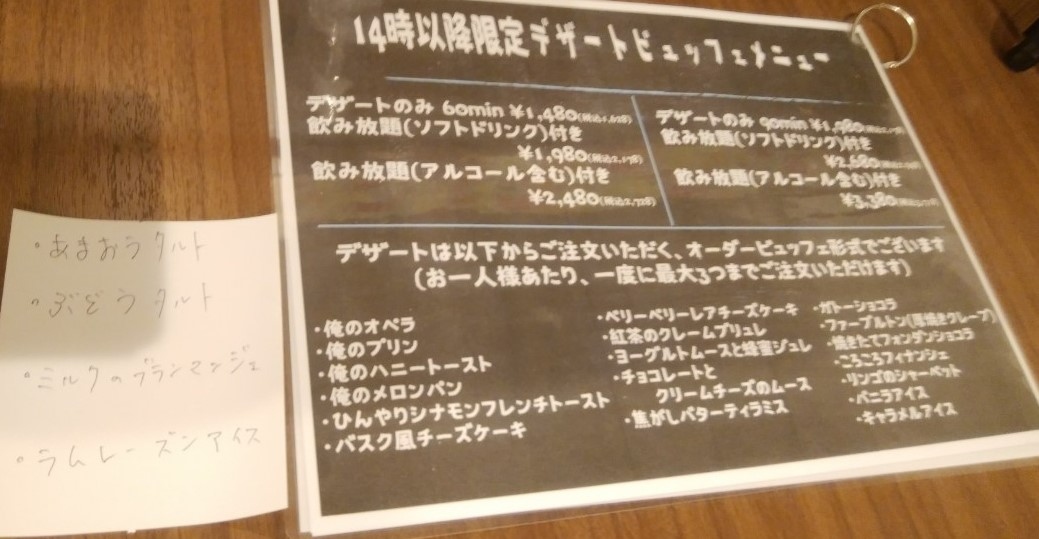 14時以降限定デザートビュッフェメニュー
デザートのみ 60min ¥1,480(税込1,628)
飲み放題(ソフトドリンク)付き
¥1,980(税込2,178)
飲み放題(アルコール含む)付き
¥2,480(税込2,728)
デザートのみ 90min ¥1,980
飲み放題(ソフトドリンク)付き
¥2,680
飲み放題(アルコール含む)付き
¥3,380
デザートは以下からご注文いただく、オーダービュッフェ形式でございます
(お一人様あたり、一度に最大3つまでご注文いただけます)
・俺のオペラ
・俺のプリン
・俺のハニートースト
・俺のメロンパン
・ひんやりシナモンフレンチトースト
・バスク風チーズケーキ
・ベリーベリーレアチーズケーキ
・紅茶のクレームブリュレ
・ヨーグルトムースと蜂蜜ジュレ
・チョコレートと
クリームチーズのムース
・焦がしバターティラミス
・ガトーショコラ
・ファーブルトン(厚焼きクレープ)
・焼きたてフォンダンショコラ
・ころころフィナンシェ
・リンゴのシャーベット
・バニラアイス
・キャラメルアイス
・あまおうタルト
・ぶどうタルト
・ミルクのブランマンジェ
・ラムレーズンアイス